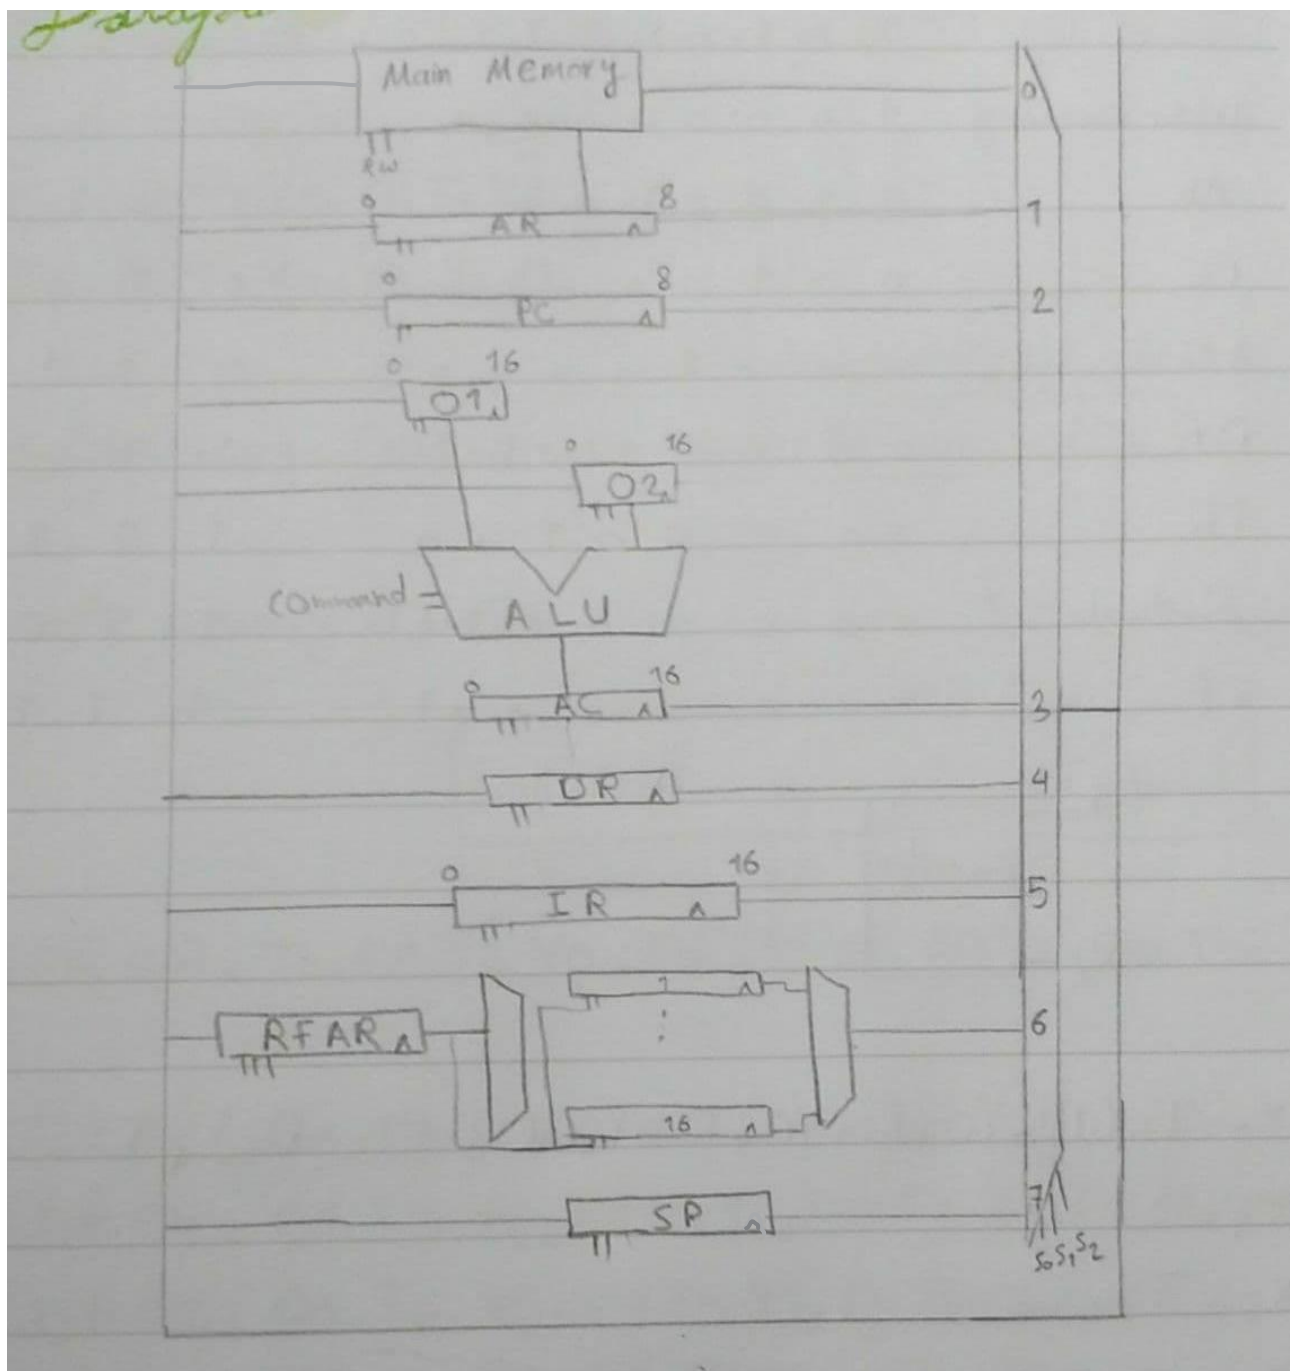 Main Memory
0
R W
0 8
AR
1
0 8
PC
2
0 16
O1
0 16
O2
Command
ALU
0 16
AC
3
DR
4
0 16
IR
5
1
RFAR
6
16
7
SP
S0 S1 S2